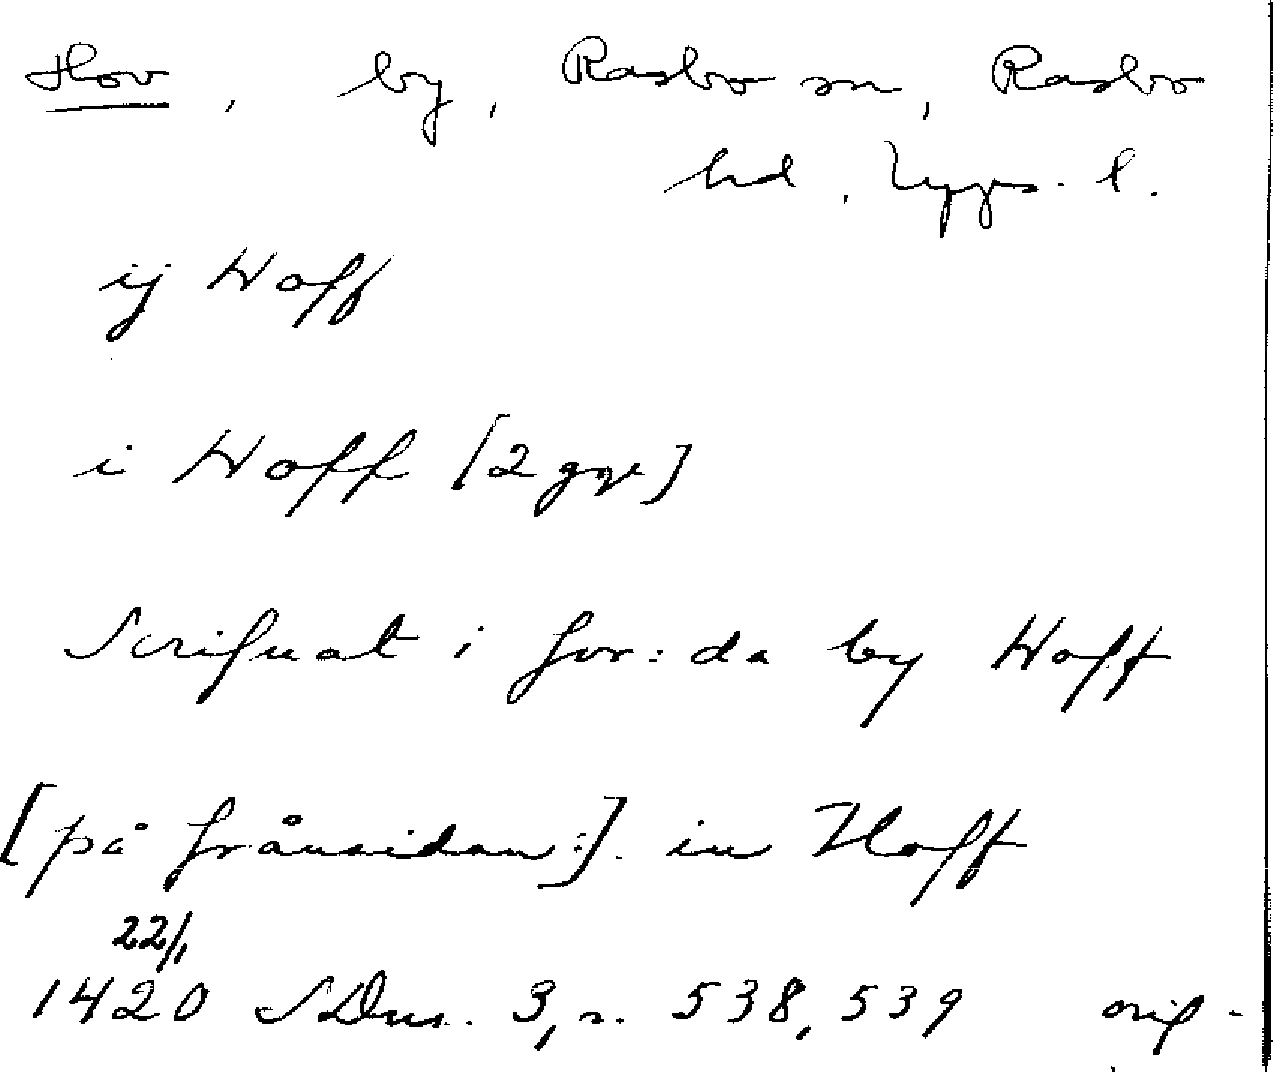 Hov, by, Rasbo sn, Rasbo
hd, Upps. l.
ij Hoff
i Hoff [2 ggr]
Scrifuat i for:da by Hoff
[på frånsidan:]. in Hoff
22/1
1420 SDns. 3, s. 538, 539 orig.